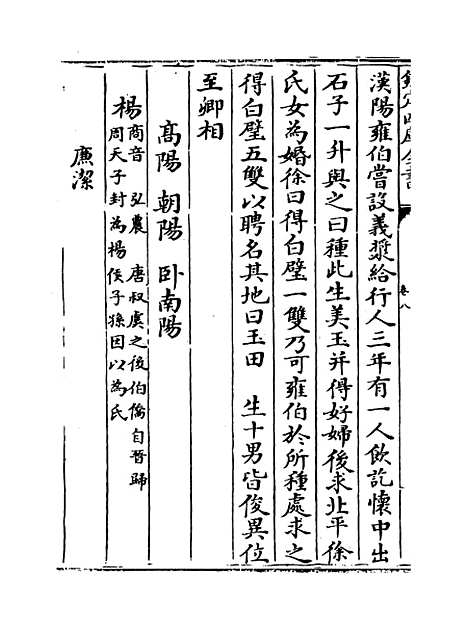 欽定四庫全書
卷八
漢陽雍伯嘗設義漿給行人三年有一人飲訖懷中出
石子一升與之曰種此生美玉并得好婦後求北平徐
氏女為婚徐曰得白璧一雙乃可雍伯於所種處求之
得白璧五雙以聘名其地曰玉田　生十男皆俊異位
至卿相
高陽　朝陽　卧南陽
楊商音　弘農　唐叔虞之後伯僑自晉歸
周天子封為楊侯子孫因以為氏
廉潔